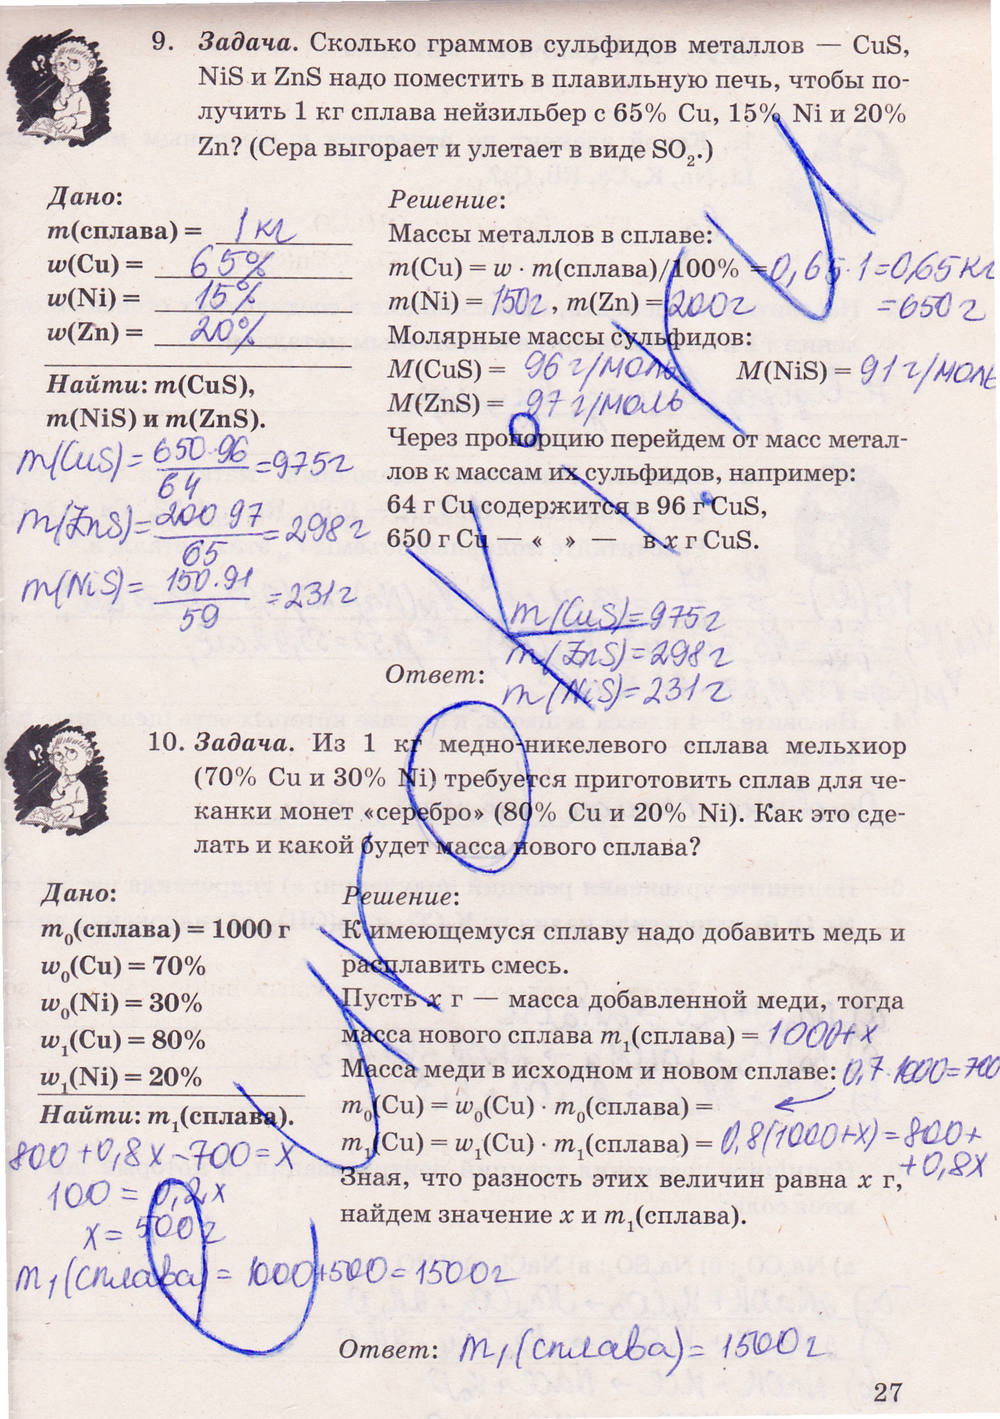 9. Задача. Сколько граммов сульфидов металлов — CuS,
NiS и ZnS надо поместить в плавильную печь, чтобы по-
лучить 1 кг сплава нейзильбер с 65% Cu, 15% Ni и 20%
Zn? (Сера выгорает и улетает в виде SO₂.)
Дано:
m(сплава) = 1 кг
w(Cu) = 65%
w(Ni) = 15%
w(Zn) = 20%
Найти: m(CuS),
m(NiS) и m(ZnS).
m(CuS) = 650·96/64 = 975 г
m(ZnS) = 200·97/65 = 298 г
m(NiS) = 150·91/59 = 231 г
Решение:
Массы металлов в сплаве:
m(Cu) = w · m(сплава)/100% = 0,65·1=0,65 кг
= 650 г
m(Ni) = 150 г, m(Zn) = 200 г
Молярные массы сульфидов:
M(CuS) = 96 г/моль M(NiS) = 91 г/моль
M(ZnS) = 97 г/моль
Через пропорцию перейдем от масс метал-
лов к массам их сульфидов, например:
64 г Cu содержится в 96 г CuS,
650 г Cu — « » — в x г CuS.
m(CuS)=975 г
m(ZnS)=298 г
Ответ: m(NiS)=231 г
10. Задача. Из 1 кг медно-никелевого сплава мельхиор
(70% Cu и 30% Ni) требуется приготовить сплав для че-
канки монет «серебро» (80% Cu и 20% Ni). Как это сде-
лать и какой будет масса нового сплава?
Дано:
m₀(сплава) = 1000 г
w₀(Cu) = 70%
w₀(Ni) = 30%
w₁(Cu) = 80%
w₁(Ni) = 20%
Найти: m₁(сплава).
800 + 0,8x - 700 = x
100 = 0,2x
x = 500 г
m₁(сплава) = 1000+500 = 1500 г
Решение:
К имеющемуся сплаву надо добавить медь и
расплавить смесь.
Пусть x г — масса добавленной меди, тогда
масса нового сплава m₁(сплава) = 1000+x
Масса меди в исходном и новом сплаве: 0,7·1000=700
m₀(Cu) = w₀(Cu) · m₀(сплава) =
m₁(Cu) = w₁(Cu) · m₁(сплава) = 0,8(1000+x) = 800+
+0,8x
Зная, что разность этих величин равна x г,
найдем значение x и m₁(сплава).
Ответ: m₁(сплава) = 1500 г
27